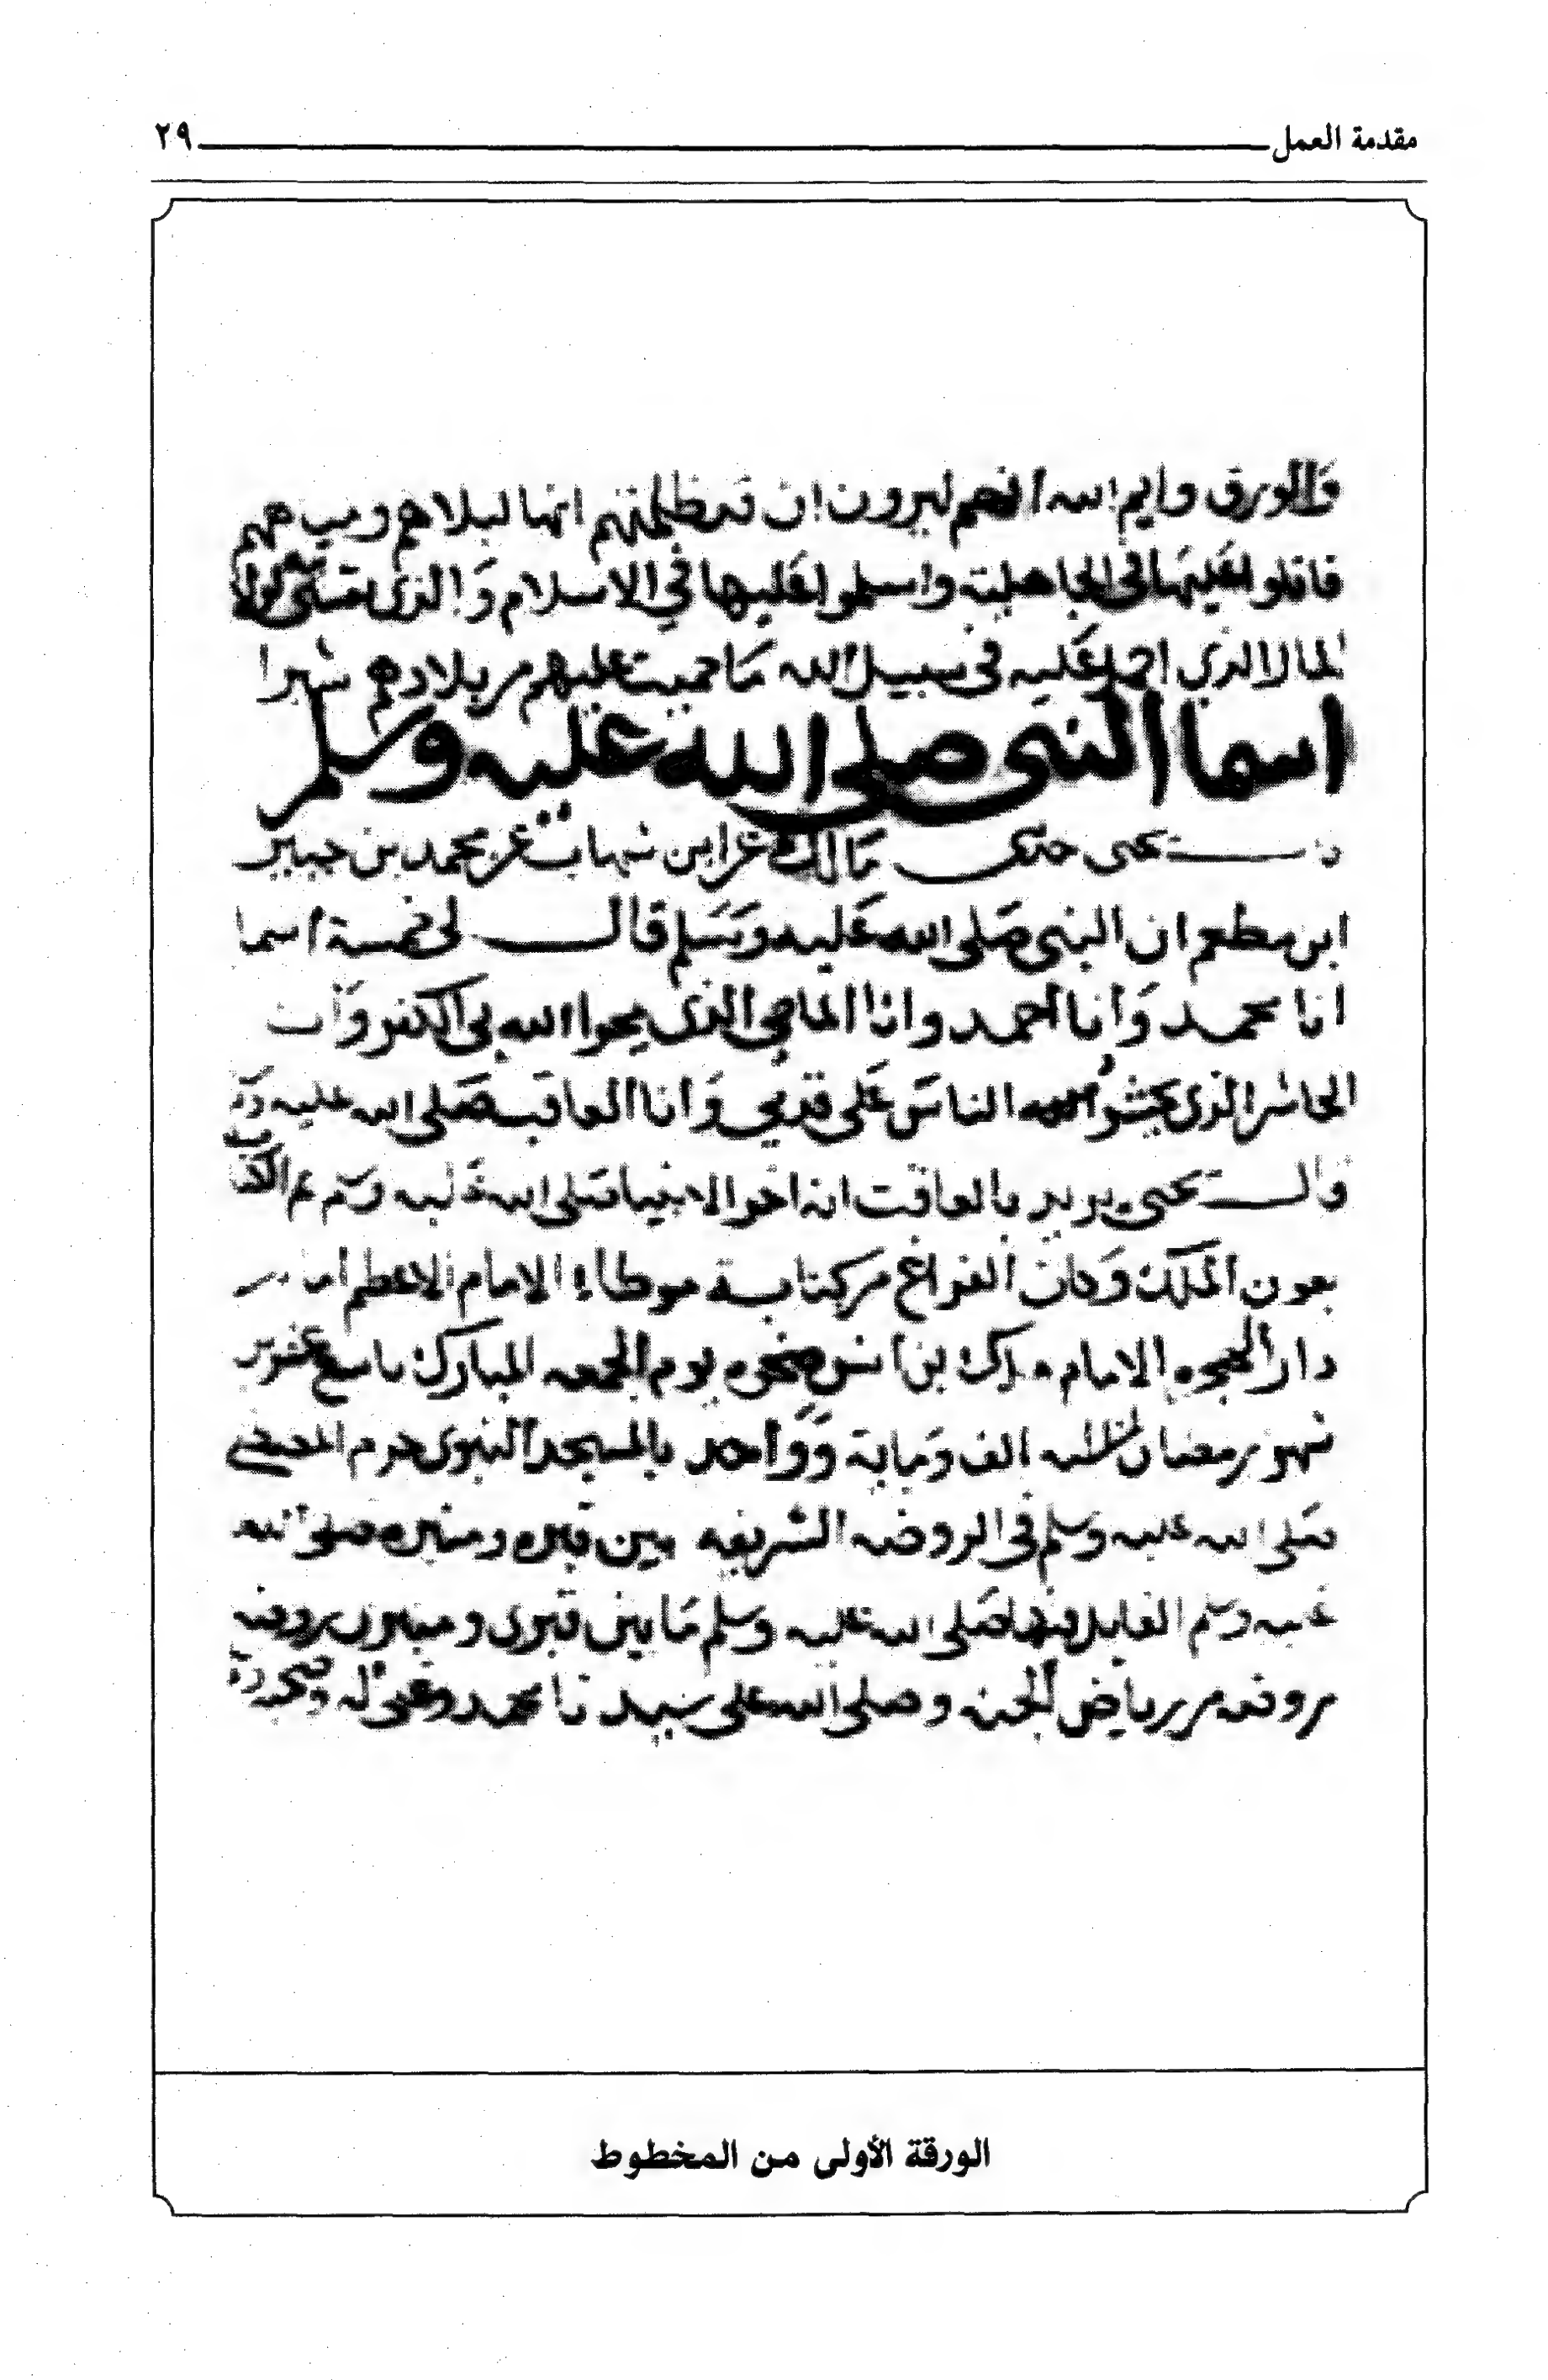 مقدمة العمل ٢٩
والورق وايم الله انهم ليرون ان قد ظلمتهم انها لبلادهم ومياههم
قاتلوا عليها في الجاهلية واسلموا عليها في الاسلام والذي نفسي بيده لولا
المال الذي احمل عليه في سبيل الله ما حميت عليهم من بلادهم شبرا
اسما النبي صلى الله عليه وسلم
يحيى حدثني مالك عن ابن شهاب عن محمد بن جبير
ابن مطعم ان النبي صلى الله عليه وسلم قال لي خمسة اسما
انا محمد وانا احمد وانا الماحي الذي يمحوا الله بي الكفر وانا
الحاشر الذي يحشر الناس على قدمي وانا العاقب صلى الله عليه
قال يحيى يريد بالعاقب انه اخر الانبيا صلى الله عليه وسلم تم الكتاب
بعون الملك وكان الفراغ من كتابة موطا الامام الاعظم امام
دار الهجره الامام مالك بن انس ضحوه يوم الجمعه المبارك تاسع عشر
شهر رمضان سنة الف وماية وواحد بالمسجد النبوي حرم المصطفى
صلى الله عليه وسلم في الروضه الشريفه بين قبره ومنبره صلى الله
عليه وسلم القايل فيها صلى الله عليه وسلم ما بين قبري ومنبري روضه
روضه من رياض الجنه وصلى الله على سيدنا محمد وعلى اله وصحبه
الورقة الأولى من المخطوط